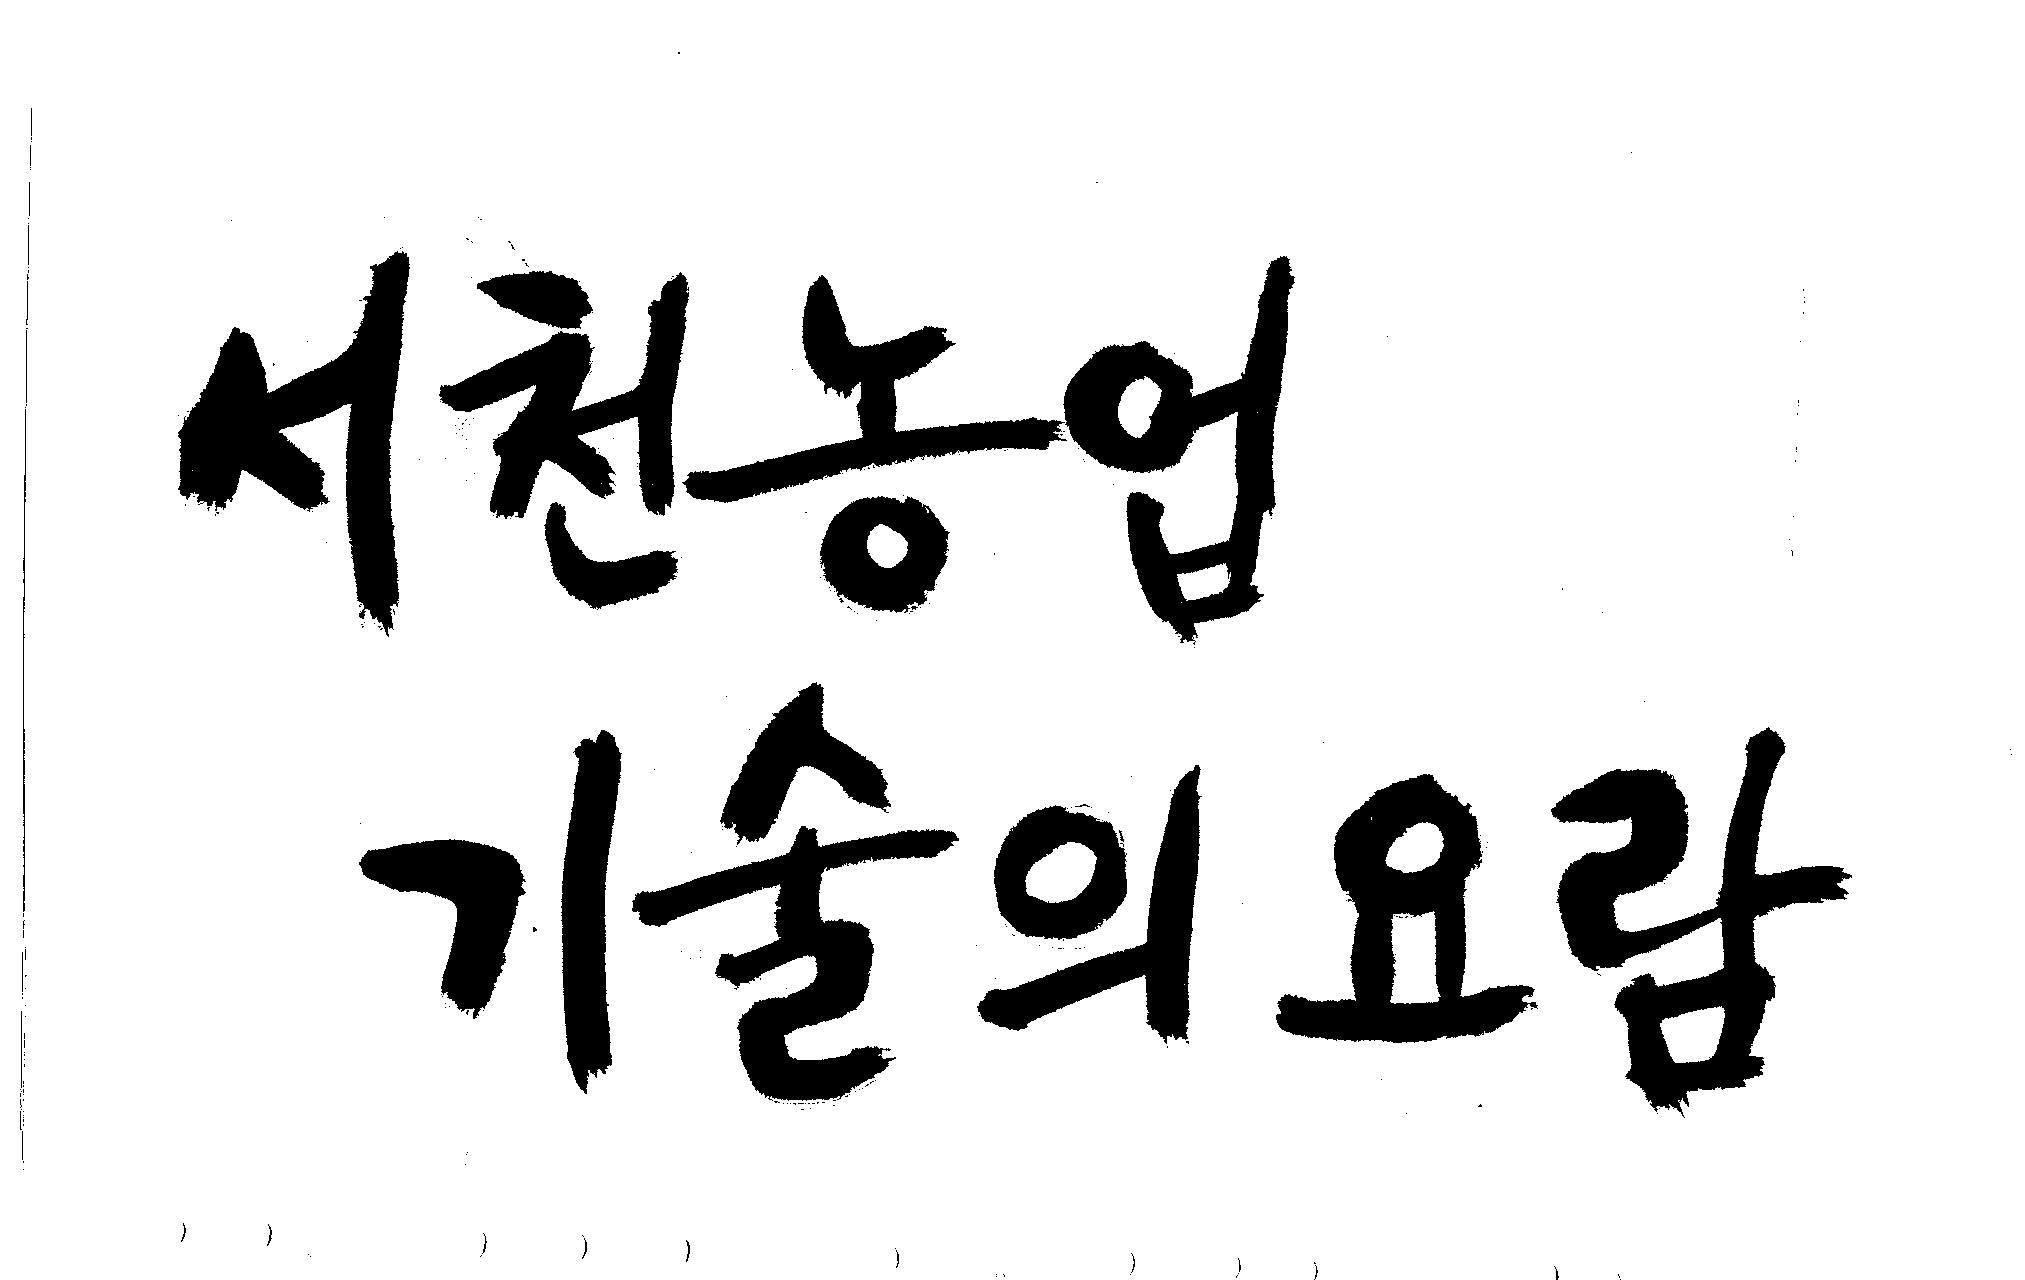 서천농업
기술의 요람